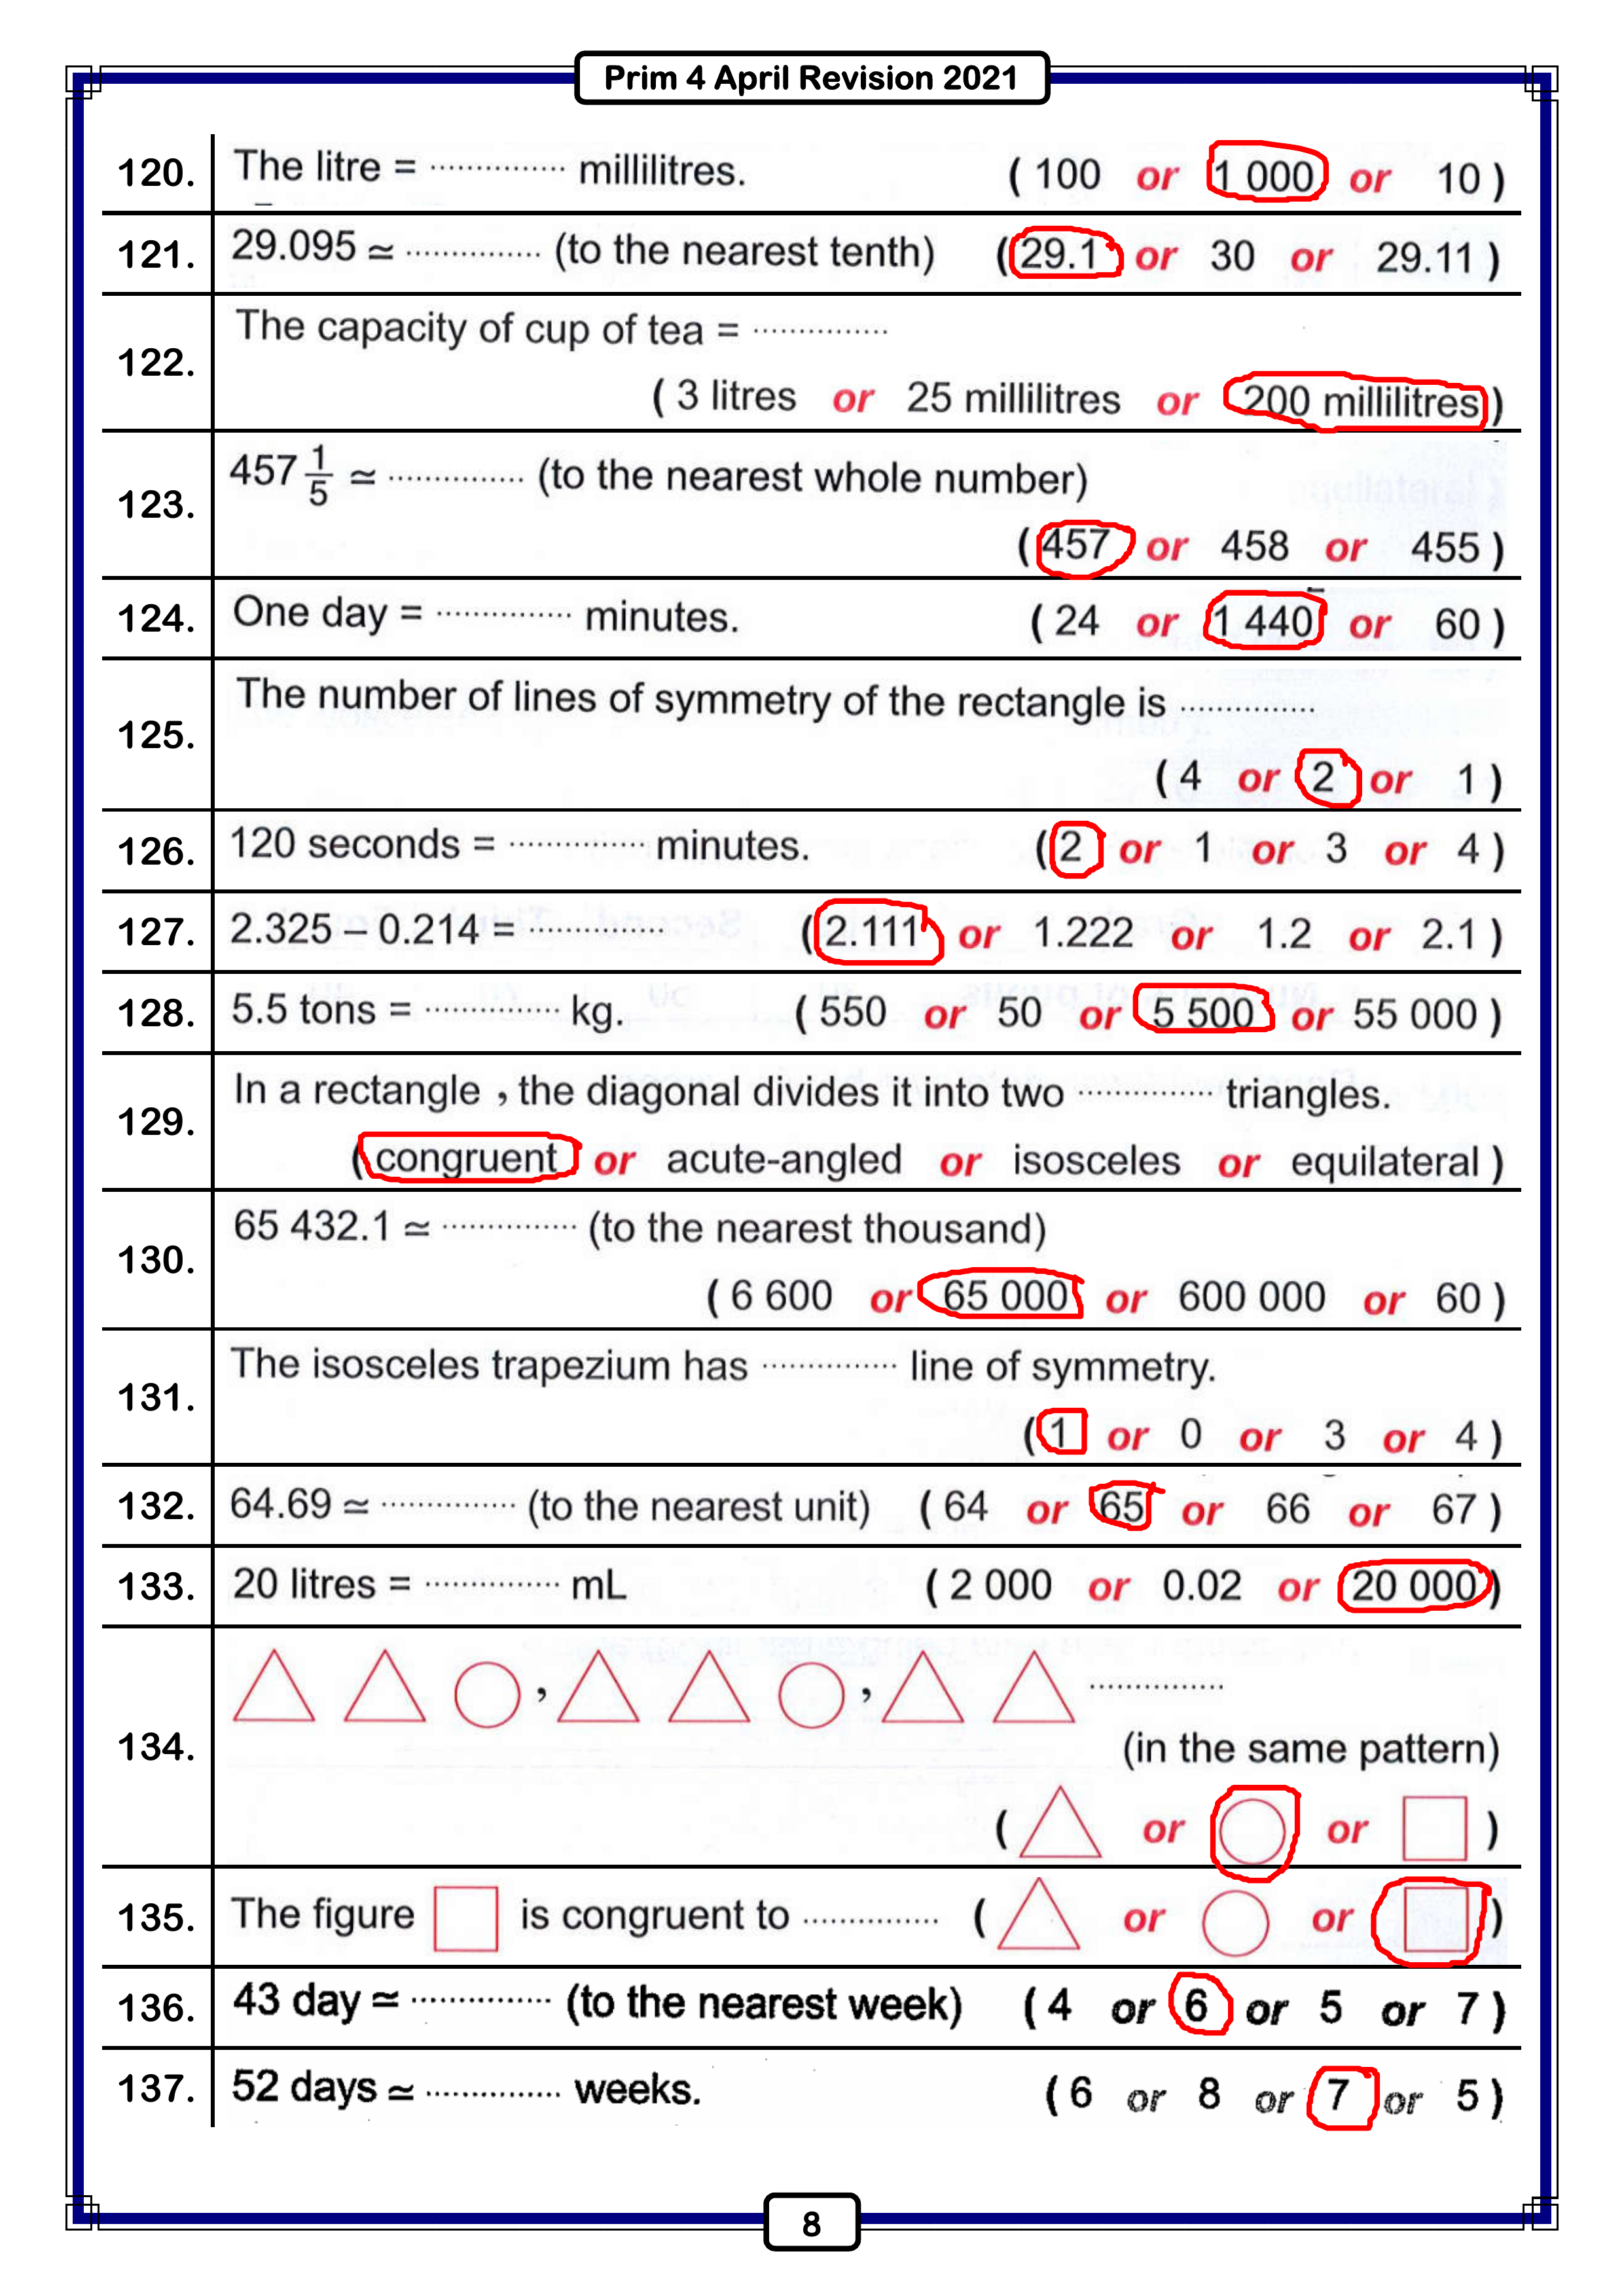 Prim 4 April Revision 2021
120. The litre = ··············· millilitres. ( 100 or 1 000 or 10 )
121. 29.095 ≃ ··············· (to the nearest tenth) ( 29.1 or 30 or 29.11 )
122. The capacity of cup of tea = ···············
( 3 litres or 25 millilitres or 200 millilitres )
123. 457 1/5 ≃ ··············· (to the nearest whole number)
( 457 or 458 or 455 )
124. One day = ··············· minutes. ( 24 or 1 440 or 60 )
125. The number of lines of symmetry of the rectangle is ···············
( 4 or 2 or 1 )
126. 120 seconds = ··············· minutes. ( 2 or 1 or 3 or 4 )
127. 2.325 – 0.214 = ··············· ( 2.111 or 1.222 or 1.2 or 2.1 )
128. 5.5 tons = ··············· kg. ( 550 or 50 or 5 500 or 55 000 )
129. In a rectangle , the diagonal divides it into two ··············· triangles.
( congruent or acute-angled or isosceles or equilateral )
130. 65 432.1 ≃ ··············· (to the nearest thousand)
( 6 600 or 65 000 or 600 000 or 60 )
131. The isosceles trapezium has ··············· line of symmetry.
( 1 or 0 or 3 or 4 )
132. 64.69 ≃ ··············· (to the nearest unit) ( 64 or 65 or 66 or 67 )
133. 20 litres = ··············· mL ( 2 000 or 0.02 or 20 000 )
134. , , ···············
(in the same pattern)
( or or )
135. The figure is congruent to ··············· ( or or )
136. 43 day ≃ ··············· (to the nearest week) ( 4 or 6 or 5 or 7 )
137. 52 days ≃ ··············· weeks. ( 6 or 8 or 7 or 5 )
8